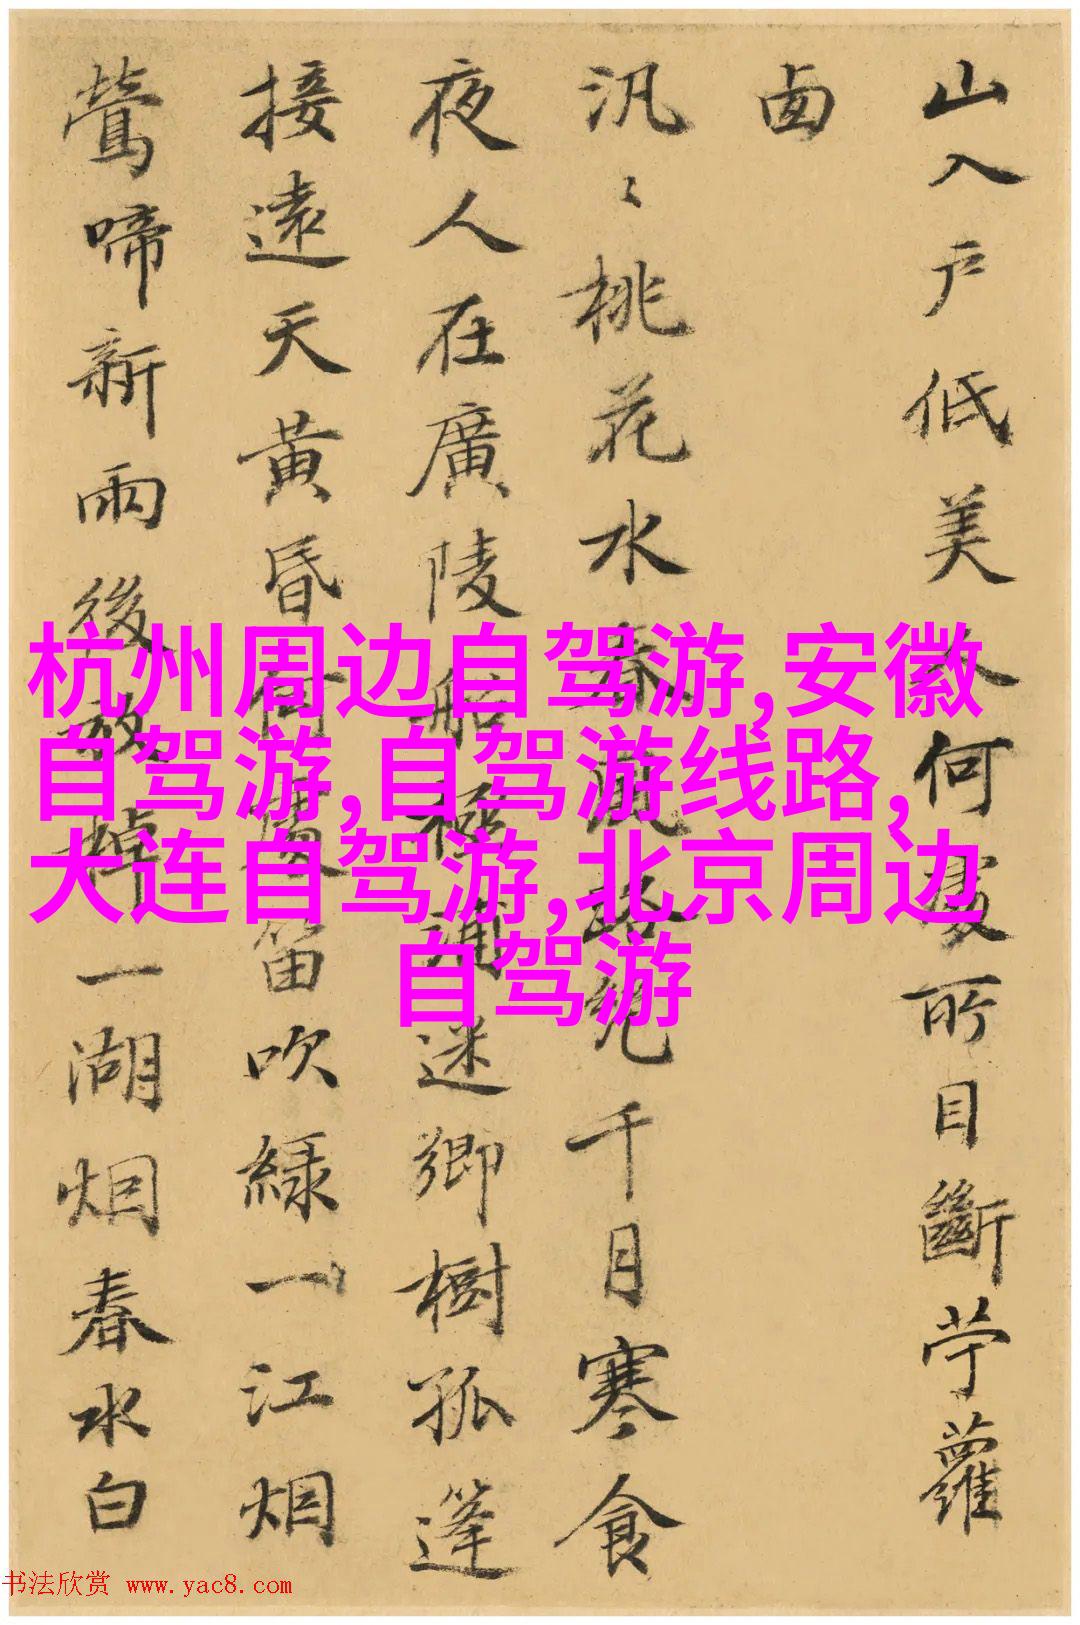 山入户低美人何處所目斷苧蘿
汎〻桃花水春風路千月寒食
夜人在廣陵船極浦迷鄉樹孤篷
接遠天黄昏何處笛吹緑一江烟
鶯啼新雨後放棹一湖烟春水白
杭州周边自驾游,安徽
自驾游,自驾游线路,
大连自驾游,北京周边
自驾游
书法欣赏 www.yac8.com